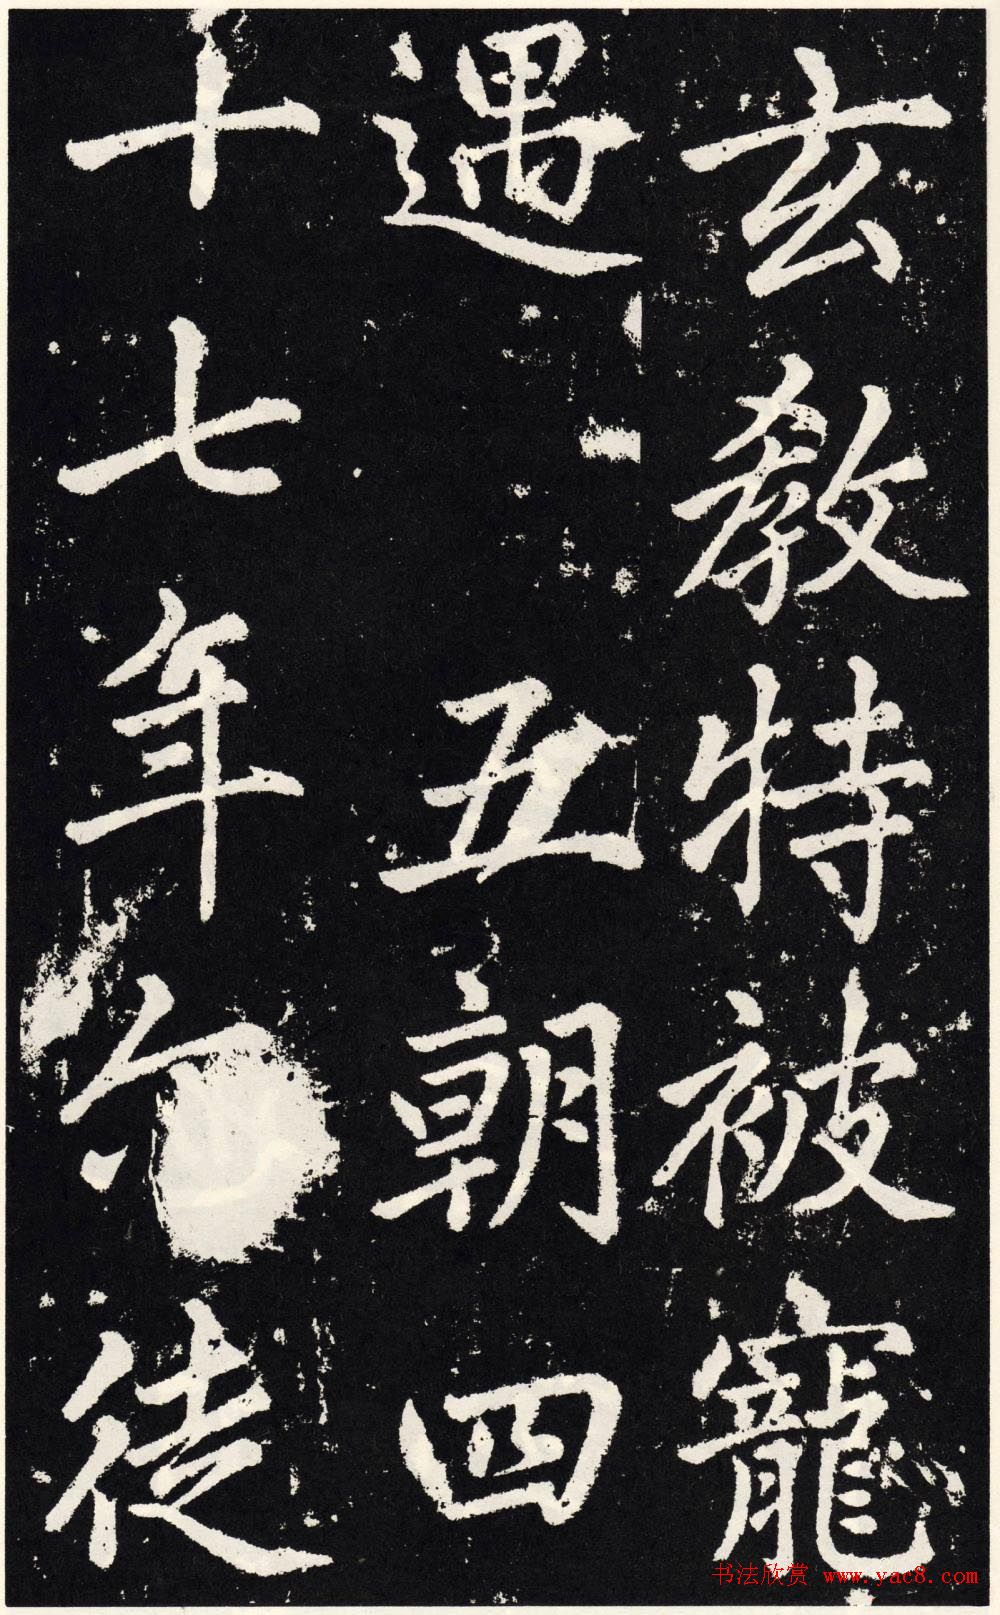 玄教特被寵
遇 五朝四
十七年 徒
书法欣赏 www.yac8.com